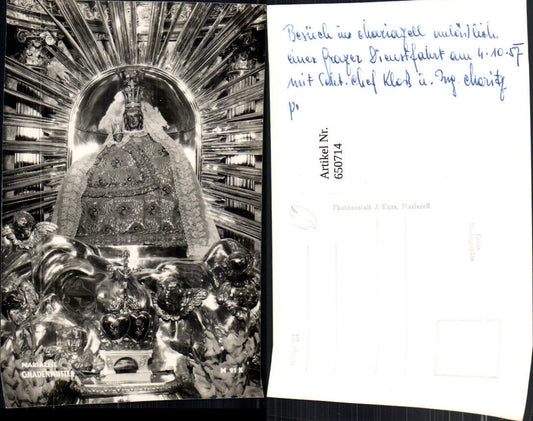 MARIAZELL
GNADENMUTTER
M 91 K
Besuch in Mariazell anläßlich
einer Grazer Dienstfahrt am 4.10.57
mit Amt. chef Klos u. Ing. Moritz
Artikel Nr.
650714
Photoanstalt J. Kuss, Mariazell
Echte
Photographie